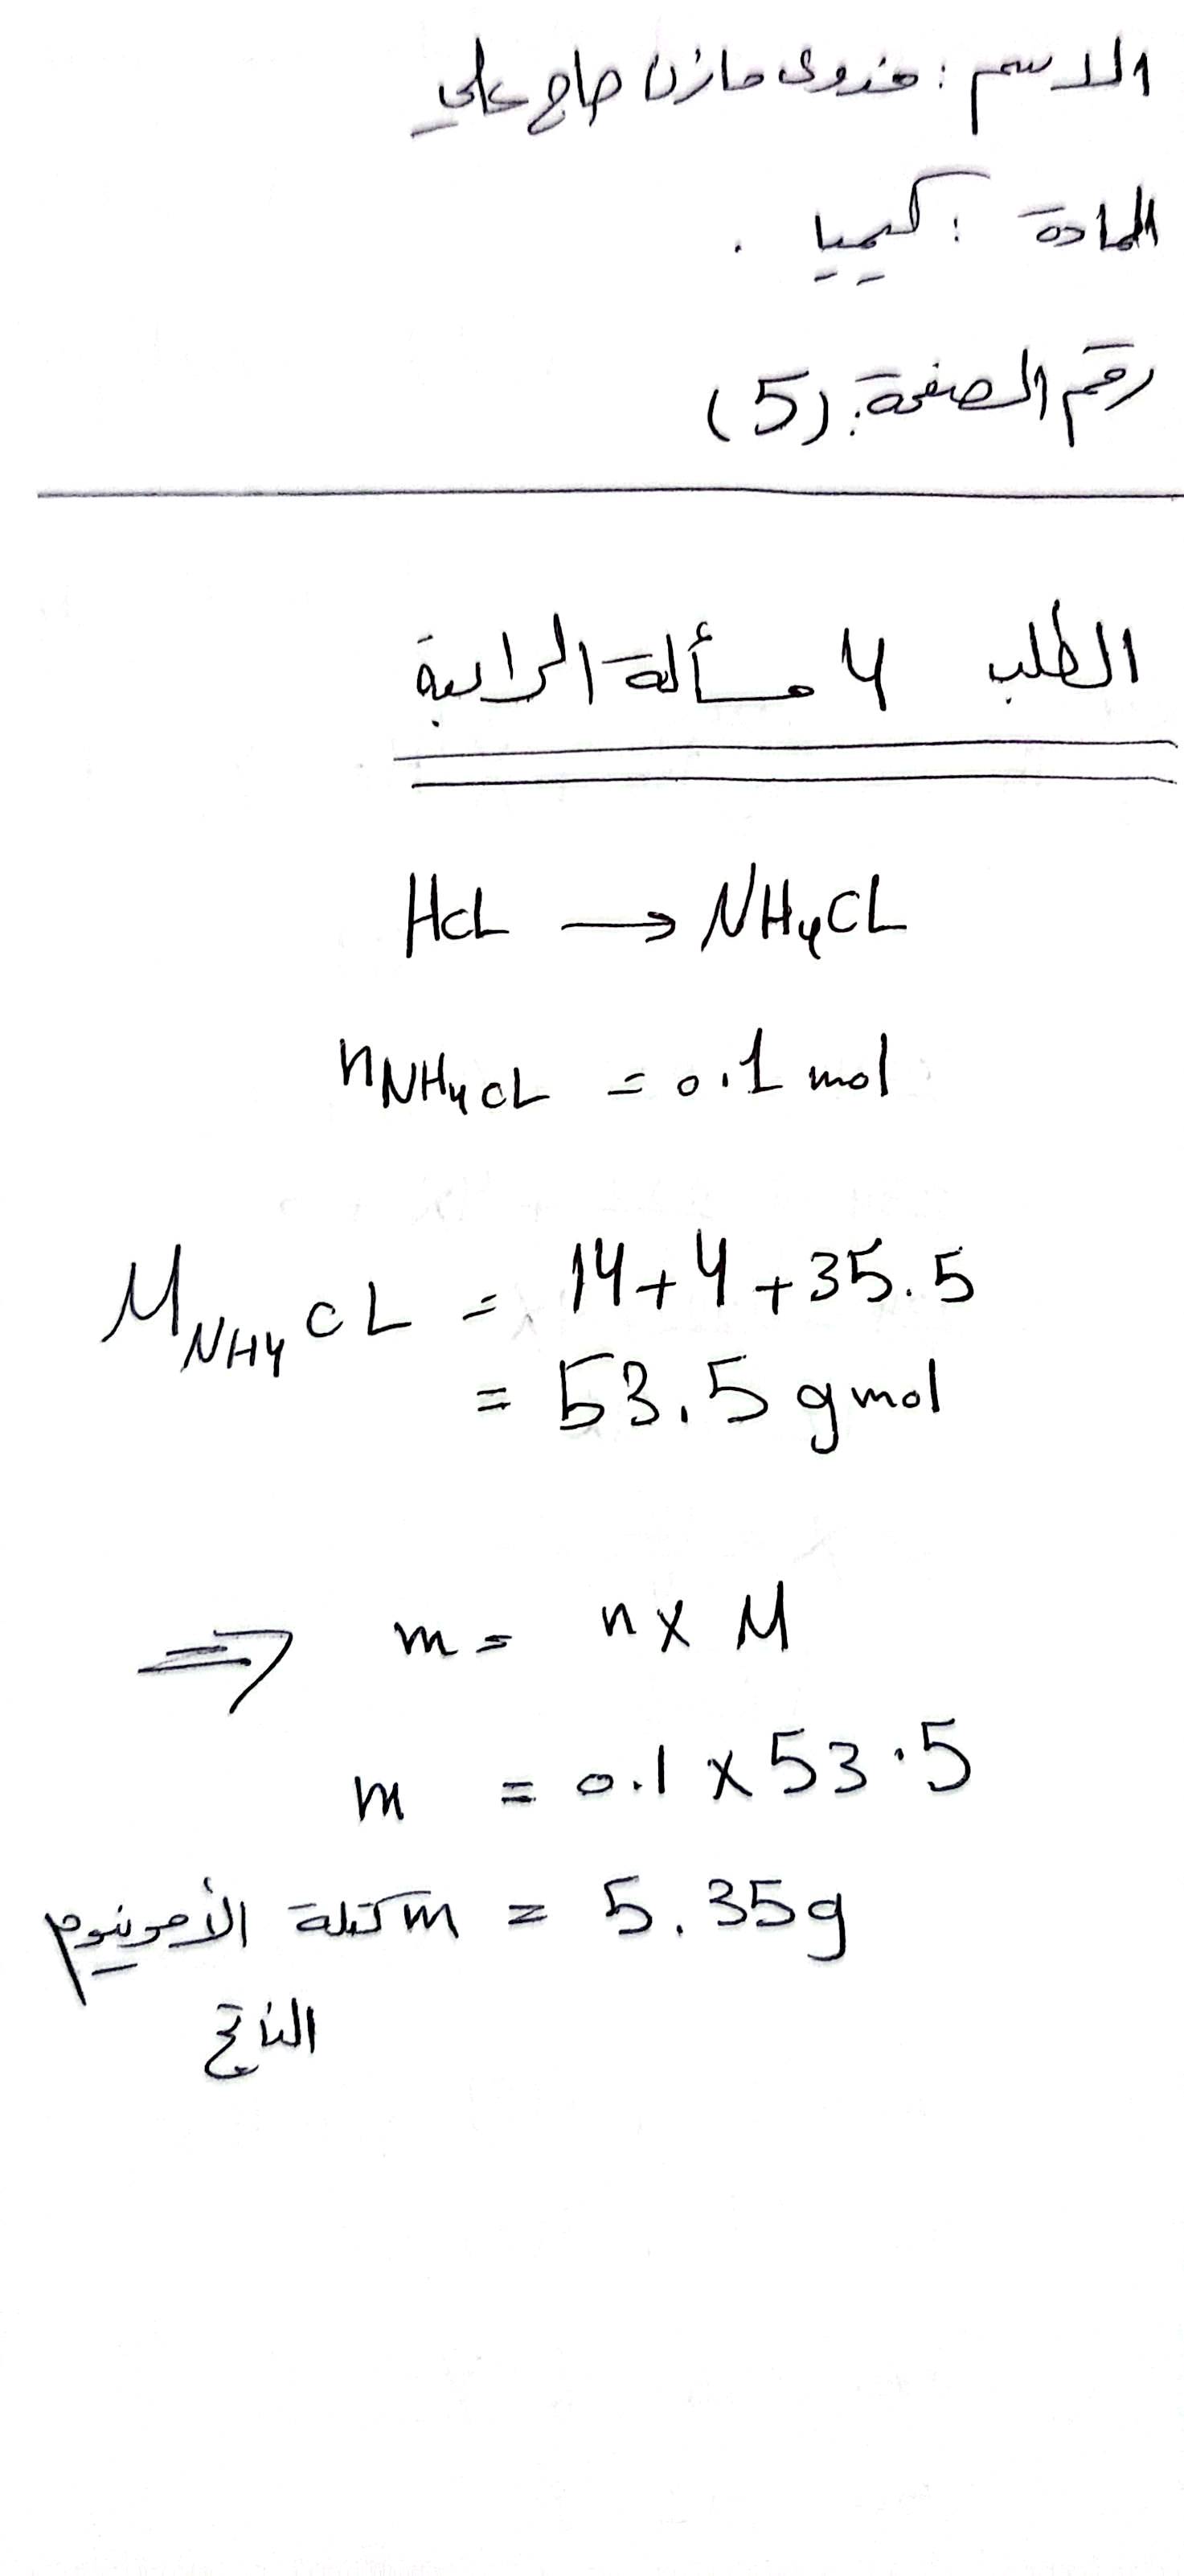 الاسم : فدوى مازن حاج علي
المادة : كيميا .
رقم الصفحة: (5)
الطلب 4 مسألة الرابعة
HCL → NH₄CL
n NH₄CL = 0.1 mol
M NH₄ CL = 14+4+35.5
= 53.5 g mol
⇒ m = n x M
m = 0.1 x 53.5
m كتلة الأمونيوم = 5.35g
الناتج